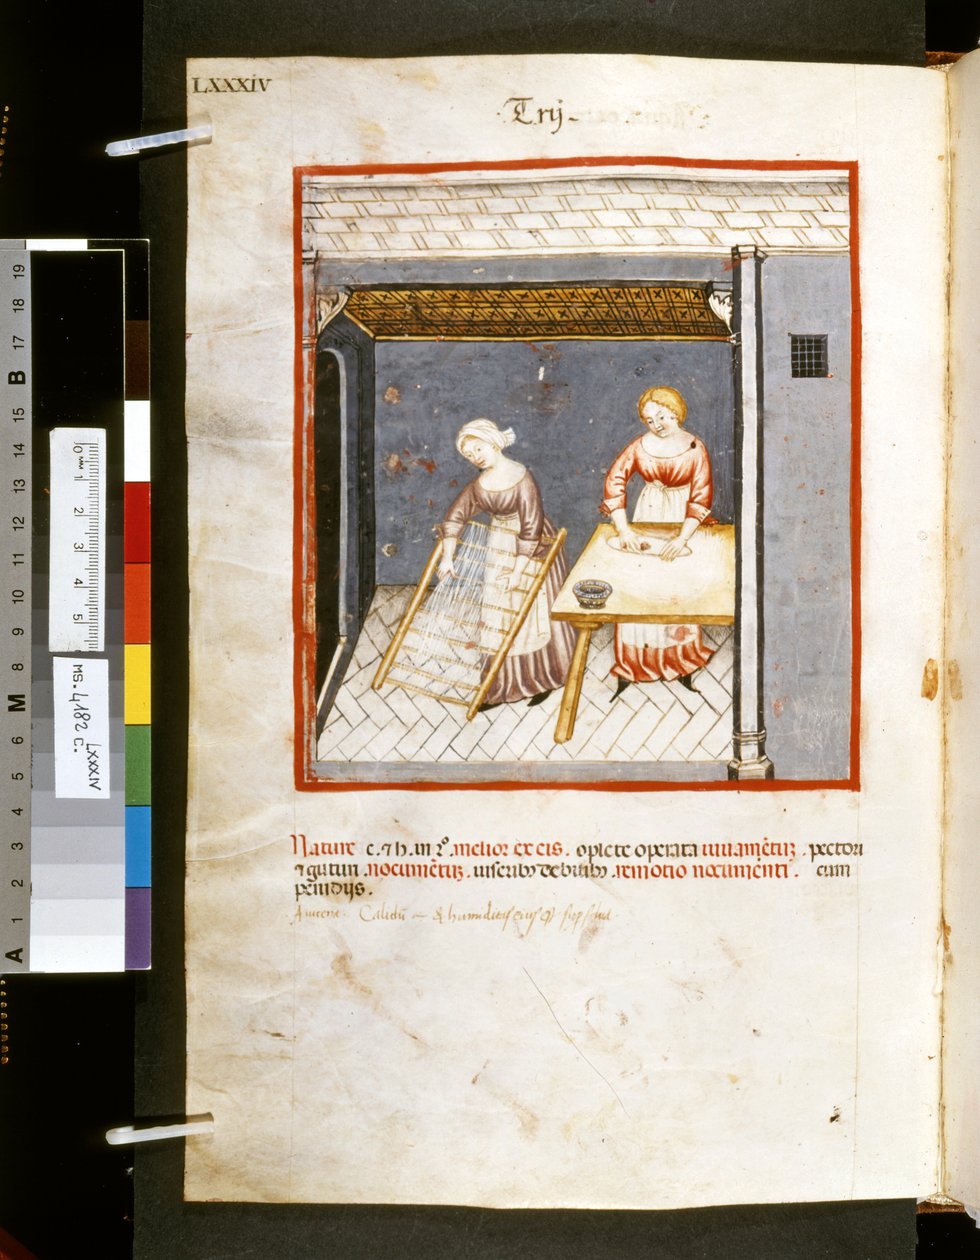 LXXXIV
Trij
Nature c. ⁊ h. in 2º. melior ex eis. oplete operata iuuamentuz. pectori
⁊ gutturi. nocumentuz. uiscerib; debilib; remotio nocumenti. cum
penidijs.
Auicena. Calidu
19
18
17
B
15
14
13
12
11
10
9
8
7
M
6
5
4
3
2
1
A
0 mm 1 2 3 4 5
MS. 4182 C.
LXXXIV